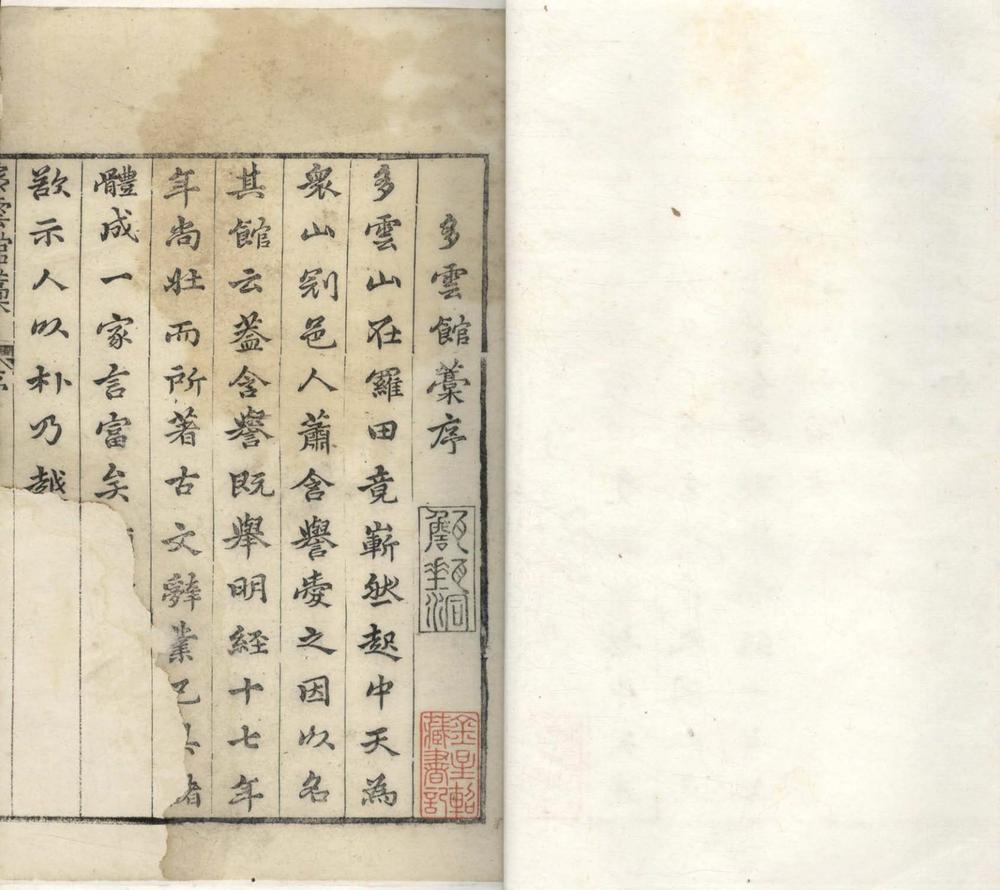 多雲館藁序
金星軺
藏書記
多雲山在羅田竟嶄然起中天為
衆山冠邑人蕭含譽愛之因以名
其館云葢含譽既舉明經十七年
年尚壯而所著古文辭業已具諸
體成一家言富矣
欲示人以朴乃越
多雲館藁